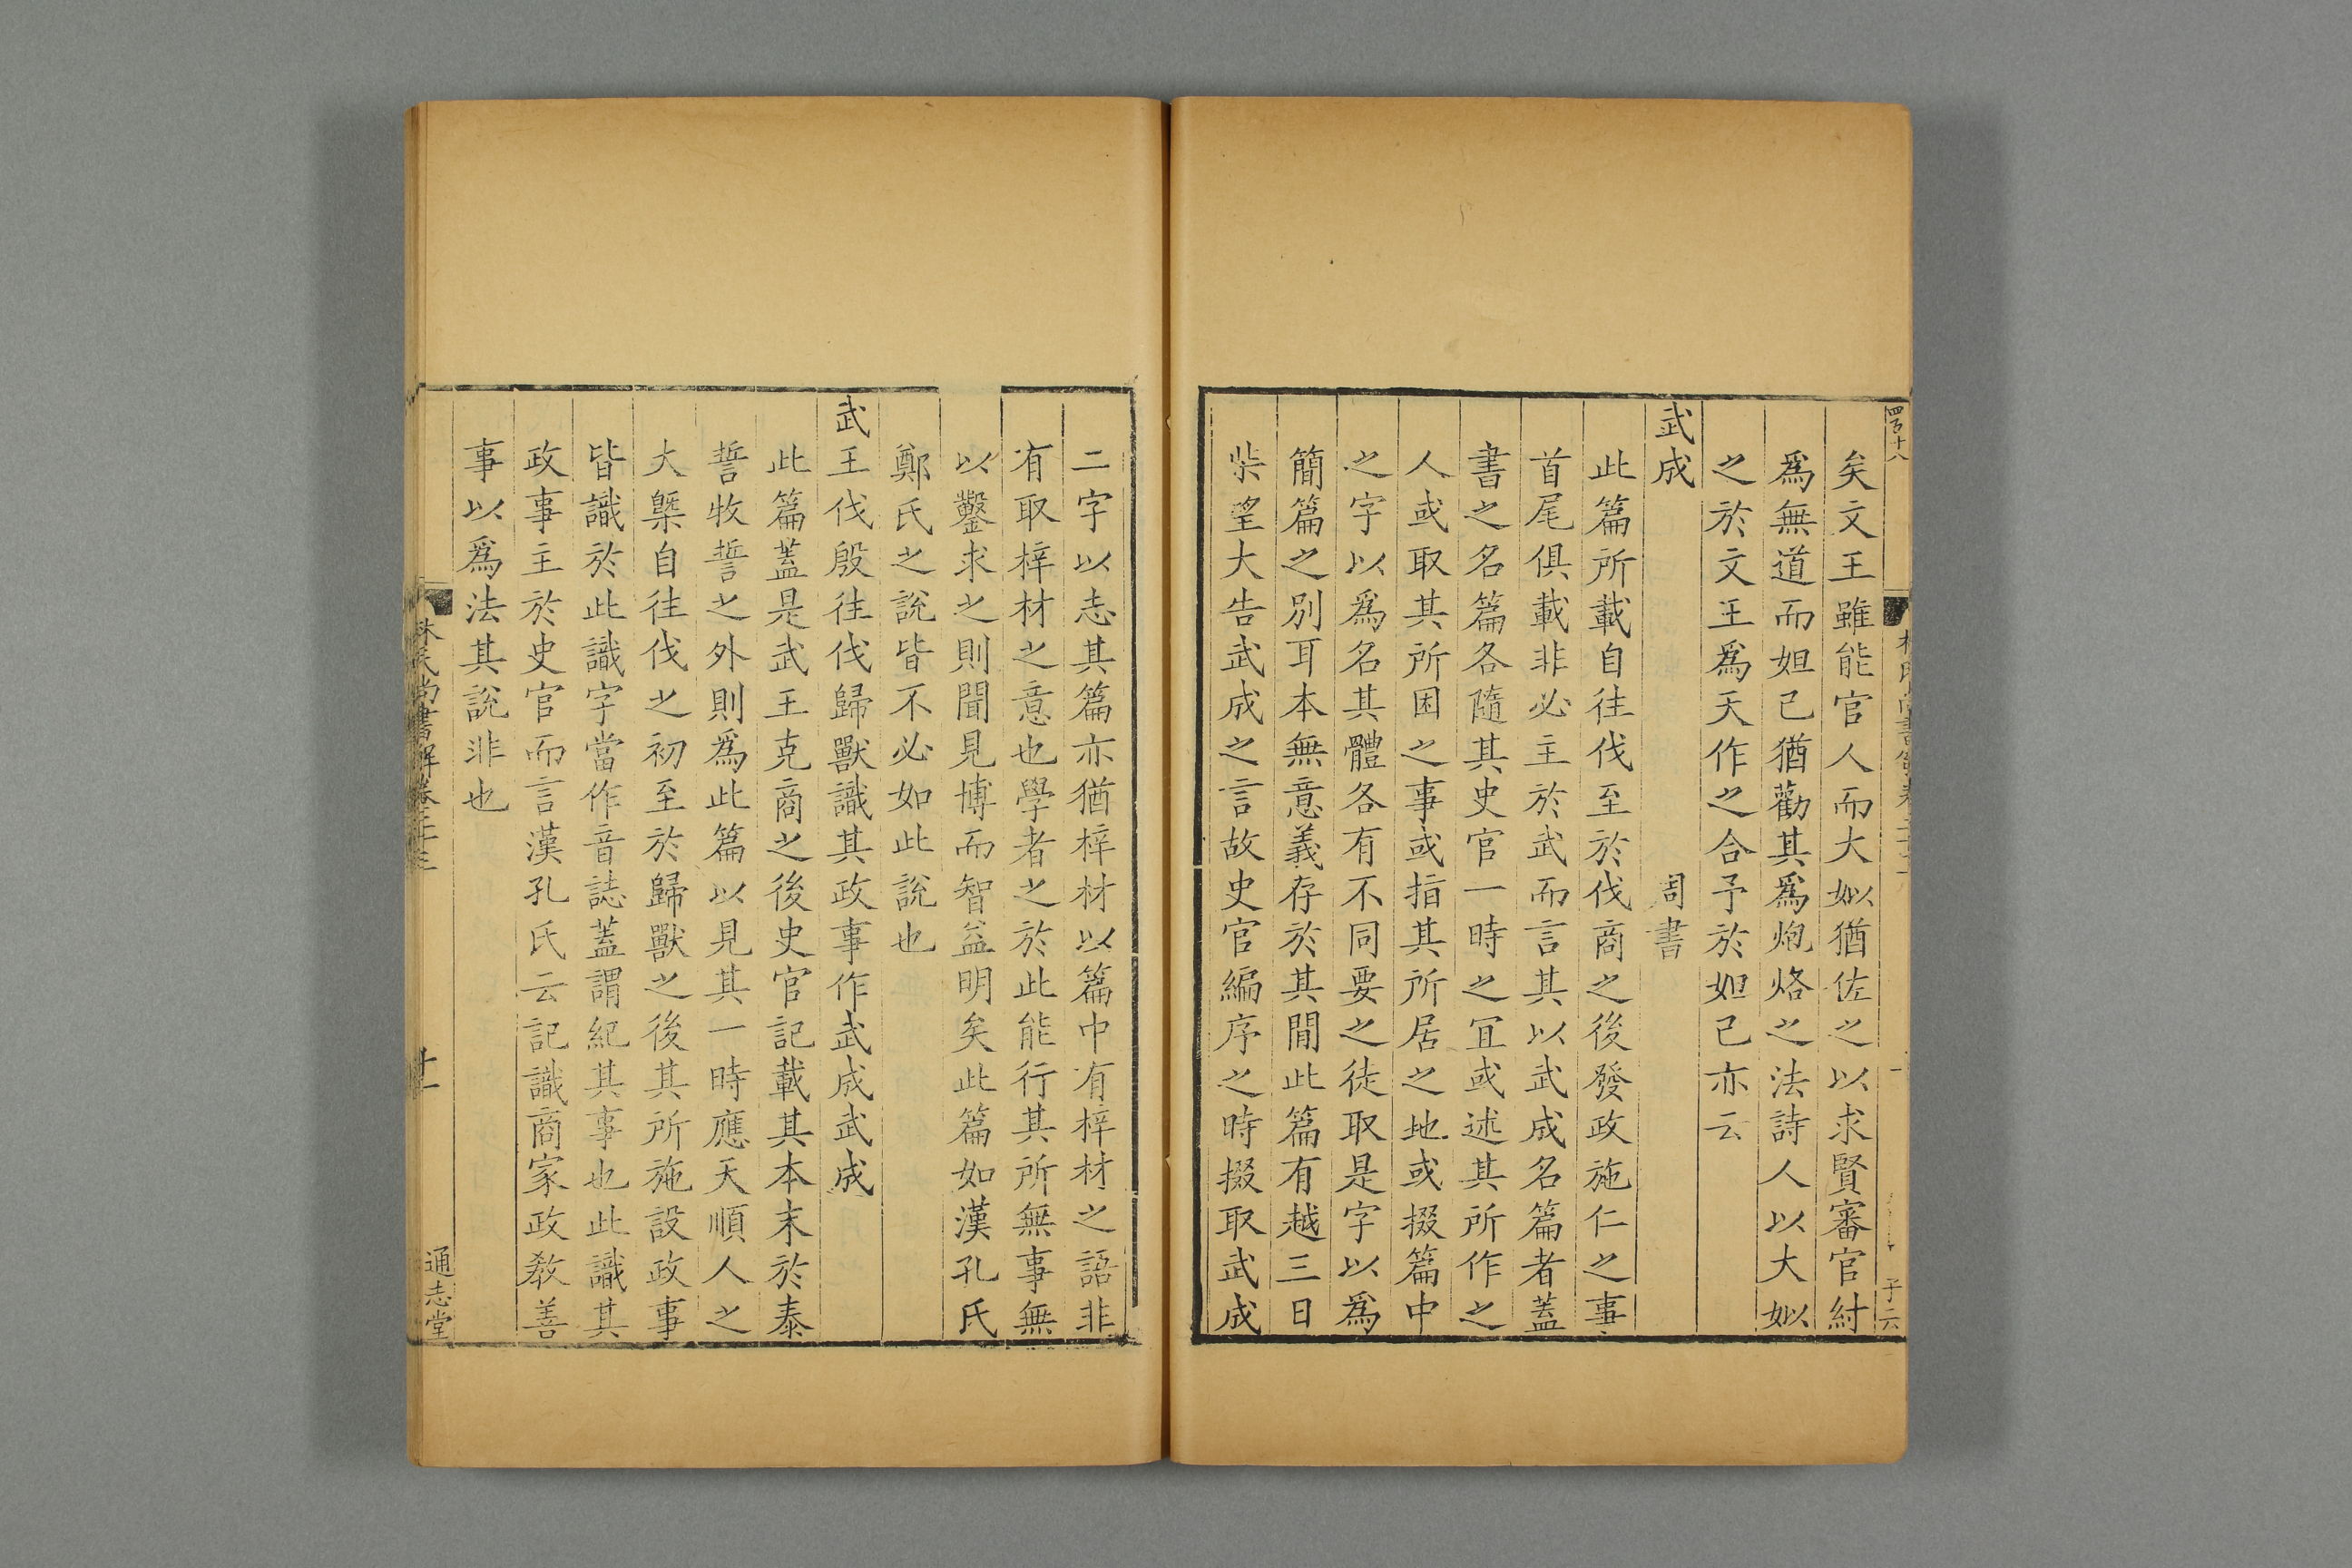 矣文王雖能官人而大姒猶佐之以求賢審官紂
爲無道而妲己猶勸其爲炮烙之法詩人以大姒
之於文王爲天作之合予於妲己亦云
武成
周書
此篇所載自往伐至於伐商之後發政施仁之事
首尾俱載非必主於武而言其以武成名篇者蓋
書之名篇各隨其史官一時之宜或述其所作之
人或取其所困之事或指其所居之地或掇篇中
之字以爲名其體各有不同要之徒取是字以爲
簡篇之別耳本無意義存於其間此篇有越三日
柴望大告武成之言故史官編序之時掇取武成
二字以志其篇亦猶梓材以篇中有梓材之語非
有取梓材之意也學者之於此能行其所無事無
以鑿求之則聞見博而智益明矣此篇如漢孔氏
鄭氏之說皆不必如此說也
武王伐殷往伐歸獸識其政事作武成武成
此篇蓋是武王克商之後史官記載其本末於泰
誓牧誓之外則爲此篇以見其一時應天順人之
大槩自往伐之初至於歸獸之後其所施設政事
皆識於此識字當作音誌蓋謂紀其事也此識其
政事主於史官而言漢孔氏云記識商家政敎善
事以爲法其說非也
林氏尚書解卷二十三
十一
通志堂